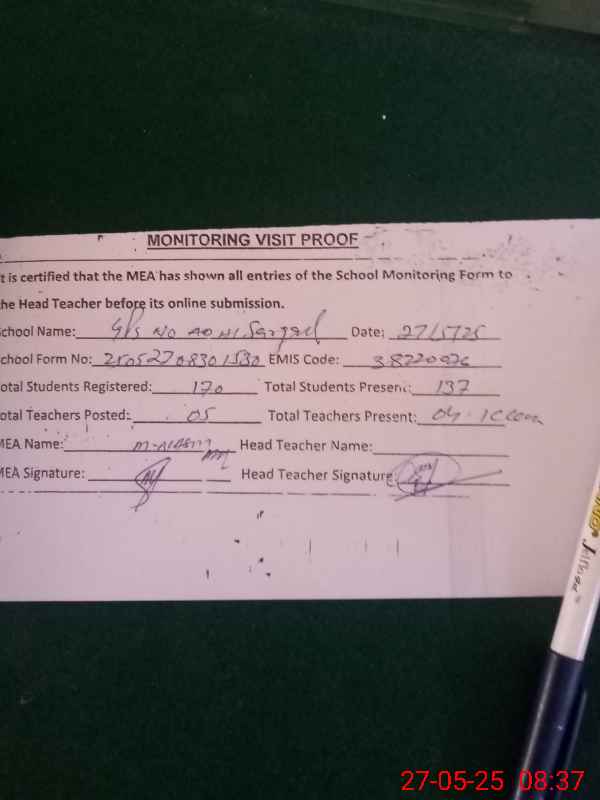 MONITORING VISIT PROOF
t is certified that the MEA has shown all entries of the School Monitoring Form to
he Head Teacher before its online submission.
chool Name: GPS NO Date: 27/5/25
chool Form No: 25052708301530 EMIS Code: 38720026
otal Students Registered: 170 Total Students Present: 137
otal Teachers Posted: 05 Total Teachers Present: 04
MEA Name: Head Teacher Name:
MEA Signature: Head Teacher Signature:
27-05-25 08:37